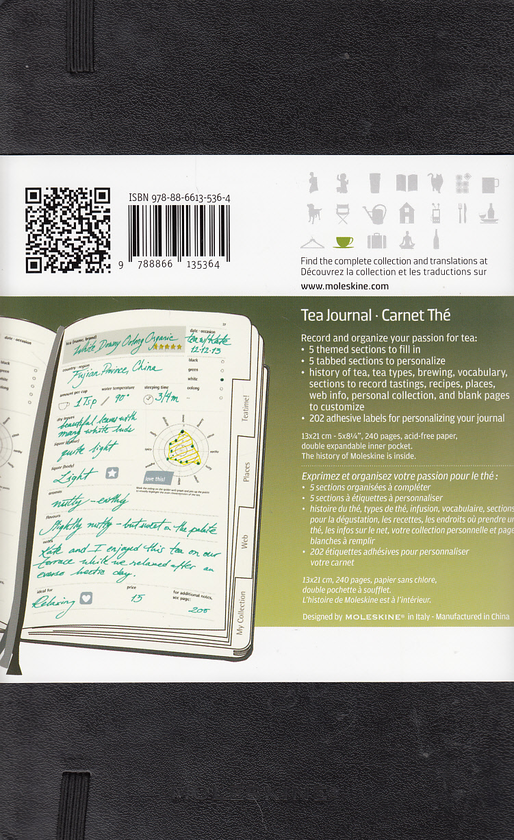 ISBN 978-88-6613-536-4
9 788866 135364
Find the complete collection and translations at
Découvrez la collection et les traductions sur
www.moleskine.com
Tea Journal · Carnet Thé
Record and organize your passion for tea:
• 5 themed sections to fill in
• 5 tabbed sections to personalize
• history of tea, tea types, brewing, vocabulary,
sections to record tastings, recipes, places,
web info, personal collection, and blank pages
to customize
• 202 adhesive labels for personalizing your journal
13x21 cm - 5x8¼", 240 pages, acid-free paper,
double expandable inner pocket.
The history of Moleskine is inside.
Exprimez et organisez votre passion pour le thé :
• 5 sections organisées à compléter
• 5 sections à étiquettes à personnaliser
• histoire du thé, types de thé, infusion, vocabulaire, sections
pour la dégustation, les recettes, les endroits où prendre un
thé, les infos sur le net, votre collection personnelle et pages
blanches à remplir
• 202 étiquettes adhésives pour personnaliser
votre carnet
13x21 cm, 240 pages, papier sans chlore,
double pochette à soufflet.
L'histoire de Moleskine est à l'intérieur.
Designed by MOLESKINE® in Italy - Manufactured in China
date · occasion
tea (name, brand)
White Downy Oolong Organic
date · occasion
12·12·13
country · region
Fujian Province, China
black
green
white
oolong
amount per cup
water temperature
steeping time
1 Tsp / 90° 3/4m
dry leaves
beautiful leaves with
many white buds
liquor (color)
quite light
liquor (body)
Light
love this!
aromas
nutty - earthy
flavours
slightly nutty - but sweet on the palate
notes
Kate and I enjoyed this tea on our
terrace while we relaxed after an
hectic day.
ideal for
Relaxing
price
15
for additional notes,
see page:
200
Teatime!
Places
Web
My Collection